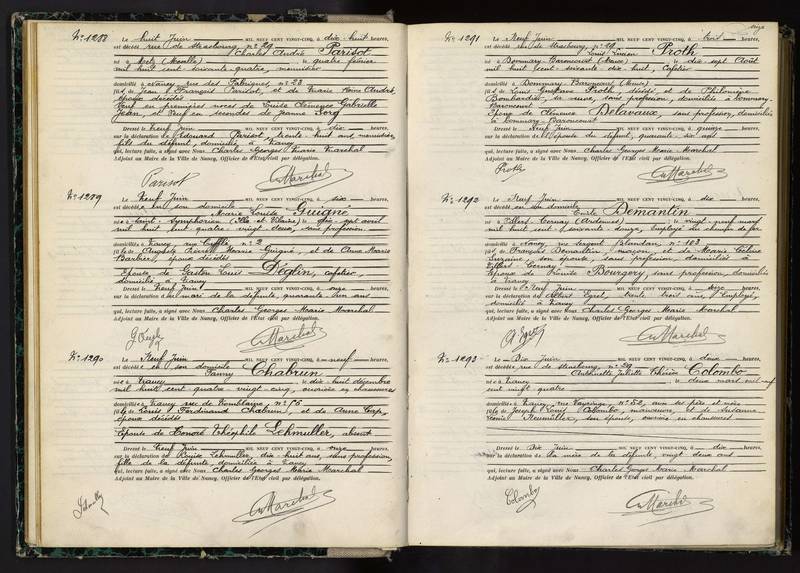 N° 1288
Le huit Juin MIL NEUF CENT VINGT-CINQ, à dix-huit heures,
est décédé rue de Strasbourg, n° 29
Charles André Parisot
né à Metz (Moselle) le quatre février
mil huit cent soixante-quatre, menuisier
domicilié à Nancy rue des Fabriques, n° 23
fils de Jean François Parisot, et de Marie André,
époux décédés
Veuf en premières noces de Louise Clémence Gabrielle
Jean, et Veuf en secondes de Jeanne Sorg
Dressé le neuf Juin MIL NEUF CENT VINGT-CINQ, à dix heures,
sur la déclaration de Edouard Parisot, trente huit ans, menuisier,
fils du défunt, domicilié à Nancy
qui, lecture faite, a signé avec Nous Charles Georges Marie Marchal
Adjoint au Maire de la Ville de Nancy, Officier de l'État civil par délégation.
Parisot
Marchal
N° 1289
Le Neuf Juin MIL NEUF CENT VINGT-CINQ, à six heures,
est décédée en son domicile
Marie Louise Guigné
née à Saint-Symphorien (Ille et Vilaine) le avril
mil huit cent quatre-vingt-deux, sans profession
domiciliée à Nancy, rue n° 2
fille de Auguste Pierre Marie Guigné, et de Anne Marie
Barbier, époux décédés
Epouse de Gaston Louis Déglin, cafetier,
domicilié à Nancy
Dressé le Neuf Juin MIL NEUF CENT VINGT-CINQ, à onze heures,
sur la déclaration du mari de la défunte, quarante un ans
qui, lecture faite, a signé avec Nous Charles Georges Marie Marchal
Adjoint au Maire de la Ville de Nancy, Officier de l'État civil par délégation.
Marchal
N° 1290
Le Neuf Juin MIL NEUF CENT VINGT-CINQ, à neuf heures,
est décédée en son domicile
Fanny Chabrun
née à Nancy le dix-huit décembre
mil huit cent quatre-vingt-cinq, ouvrière en chaussures
domiciliée à Nancy rue de Tomblaine, n°
fille de Louis Ferdinand Chabrun, et de Anne
époux décédés
Epouse de Honoré Théophile Lehmuller, absent
Dressé le neuf Juin MIL NEUF CENT VINGT-CINQ, à onze heures,
sur la déclaration de Lehmuller, dix-huit ans, sans profession,
fille de la défunte, domiciliée à Nancy
qui, lecture faite, a signé avec Nous Charles Georges Marie Marchal
Adjoint au Maire de la Ville de Nancy, Officier de l'État civil par délégation.
Marchal
N° 1291
Le Neuf Juin MIL NEUF CENT VINGT-CINQ, à trois heures,
est décédé rue de Strasbourg, n° 19
Louis Lucien Proth
né à Dommary-Baroncourt (Meuse) le dix sept Août
mil huit cent soixante dix huit, cafetier
domicilié à Dommary-Baroncourt (Meuse)
fils de Louis Gustave Proth, décédé, et de Philomène
Bombardier, sa veuve, sans profession, domiciliée à Dommary-
Baroncourt
Epoux de Clémence Delavaux, sans profession, domiciliée
à Dommary-Baroncourt
Dressé le Neuf Juin MIL NEUF CENT VINGT-CINQ, à quinze heures,
sur la déclaration de l'épouse du défunt, quarante six ans
qui, lecture faite, a signé avec Nous Charles Georges Marie Marchal
Adjoint au Maire de la Ville de Nancy, Officier de l'État civil par délégation.
Proth
Marchal
N° 1292
Le Neuf Juin MIL NEUF CENT VINGT-CINQ, à dix heures,
est décédé en son domicile
Emile Demantin
né à Villers-Cernay (Ardennes) le vingt-neuf mars
mil huit cent soixante-douze, Employé au chemin de fer
domicilié à Nancy, rue Sergent Blandan, n° 103
fils de François Demantin, maçon, et de Marie Céline
son épouse, sans profession, domiciliés à
Villers-Cernay
Epoux de Bourgery, sans profession, domiciliée
à Nancy
Dressé le Neuf Juin MIL NEUF CENT VINGT-CINQ, à seize heures,
sur la déclaration de Albert Egret, trente trois ans, Employé,
domicilié à Nancy
qui, lecture faite, a signé avec Nous Charles Georges Marie Marchal
Adjoint au Maire de la Ville de Nancy, Officier de l'État civil par délégation.
A. Egret
Marchal
N° 1293
Le Dix Juin MIL NEUF CENT VINGT-CINQ, à deux heures,
est décédée rue de Strasbourg, n° 29
Antoinette Juliette Thérèse Colombo
née à Nancy le deux mars mil neuf
cent vingt quatre
domiciliée à Nancy, rue n° 52, avec ses père et mère
fille de Joseph Louis Colombo, manoeuvre, et de Susanne
Neumuller, son épouse, ouvrière en chaussures
Dressé le Dix Juin MIL NEUF CENT VINGT-CINQ, à dix heures,
sur la déclaration de la mère de la défunte, vingt deux ans
qui, lecture faite, a signé avec Nous Charles Georges Marie Marchal
Adjoint au Maire de la Ville de Nancy, Officier de l'État civil par délégation.
Colombo
Marchal